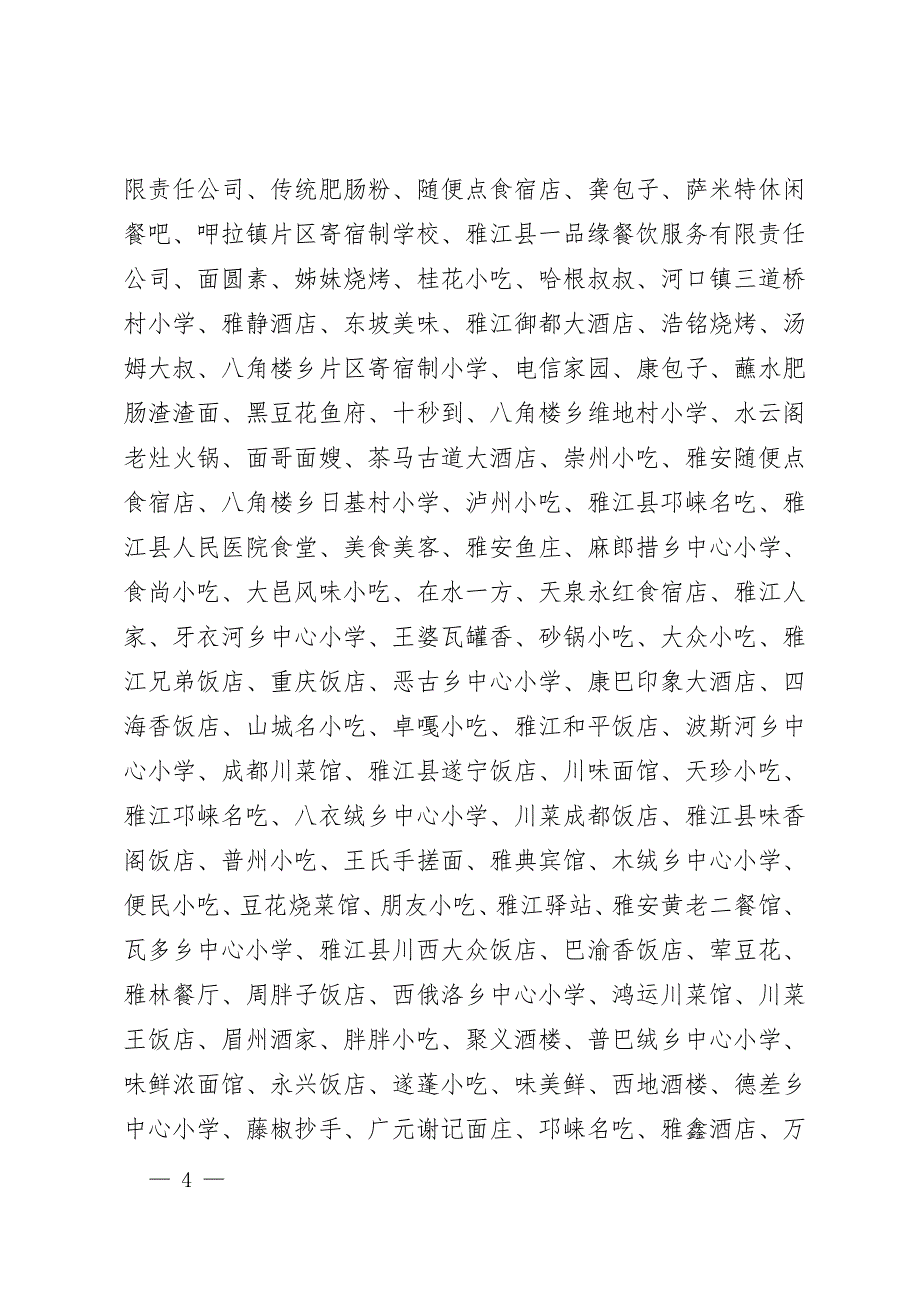 限责任公司、传统肥肠粉、随便点食宿店、龚包子、萨米特休闲
餐吧、呷拉镇片区寄宿制学校、雅江县一品缘餐饮服务有限责任
公司、面圆素、姊妹烧烤、桂花小吃、哈根叔叔、河口镇三道桥
村小学、雅静酒店、东坡美味、雅江御都大酒店、浩铭烧烤、汤
姆大叔、八角楼乡片区寄宿制小学、电信家园、康包子、蘸水肥
肠渣渣面、黑豆花鱼府、十秒到、八角楼乡维地村小学、水云阁
老灶火锅、面哥面嫂、茶马古道大酒店、崇州小吃、雅安随便点
食宿店、八角楼乡日基村小学、泸州小吃、雅江县邛崃名吃、雅
江县人民医院食堂、美食美客、雅安鱼庄、麻郎措乡中心小学、
食尚小吃、大邑风味小吃、在水一方、天泉永红食宿店、雅江人
家、牙衣河乡中心小学、王婆瓦罐香、砂锅小吃、大众小吃、雅
江兄弟饭店、重庆饭店、恶古乡中心小学、康巴印象大酒店、四
海香饭店、山城名小吃、卓嘎小吃、雅江和平饭店、波斯河乡中
心小学、成都川菜馆、雅江县遂宁饭店、川味面馆、天珍小吃、
雅江邛崃名吃、八衣绒乡中心小学、川菜成都饭店、雅江县味香
阁饭店、普州小吃、王氏手搓面、雅典宾馆、木绒乡中心小学、
便民小吃、豆花烧菜馆、朋友小吃、雅江驿站、雅安黄老二餐馆、
瓦多乡中心小学、雅江县川西大众饭店、巴渝香饭店、荤豆花、
雅林餐厅、周胖子饭店、西俄洛乡中心小学、鸿运川菜馆、川菜
王饭店、眉州酒家、胖胖小吃、聚义酒楼、普巴绒乡中心小学、
味鲜浓面馆、永兴饭店、遂蓬小吃、味美鲜、西地酒楼、德差乡
中心小学、藤椒抄手、广元谢记面庄、邛崃名吃、雅鑫酒店、万
— 4 —